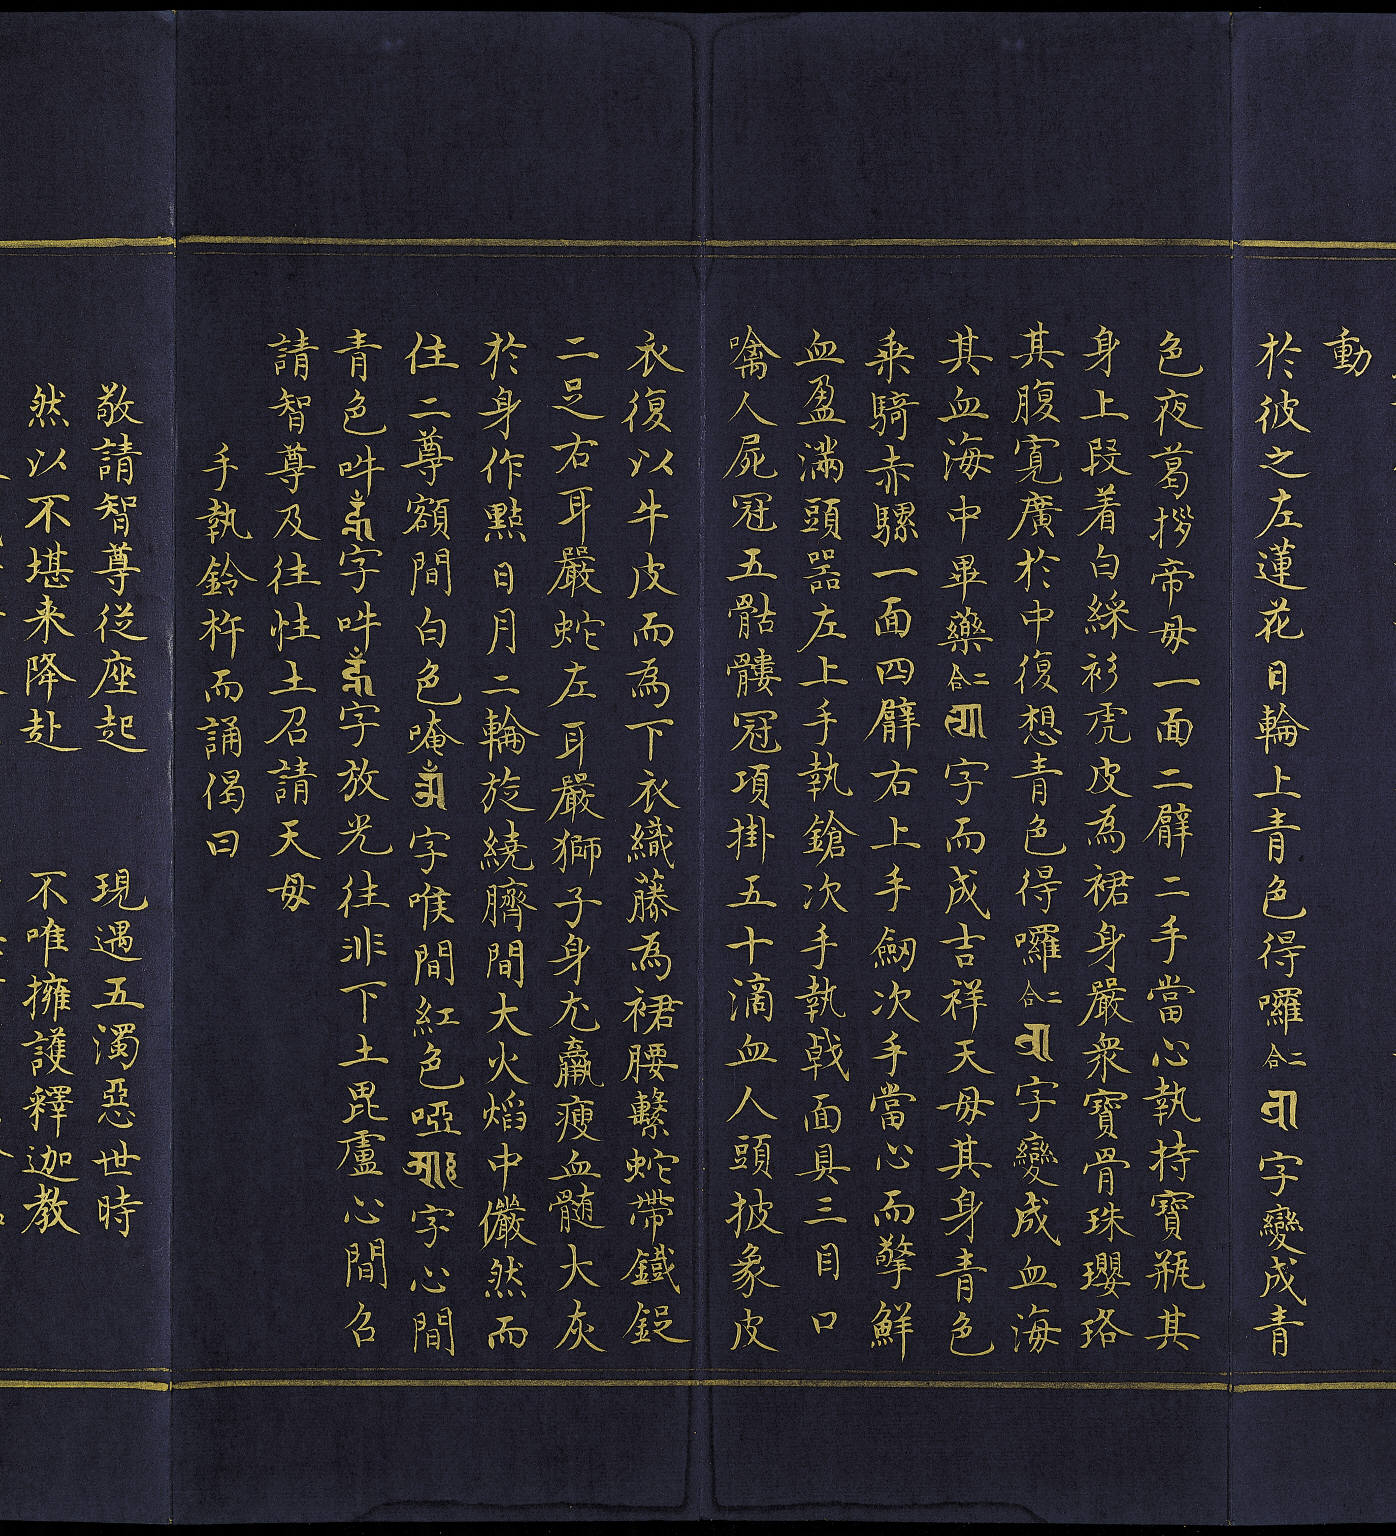 動
於彼之左蓮花日輪上青色得囉二合字變成青
色夜葛拶帝母一面二臂二手當心執持寶瓶其
身上段着白綵衫虎皮為裙身嚴衆寶骨珠瓔珞
其腹寬廣於中復想青色得囉二合字變成血海
其血海中畢藥二合字而成吉祥天母其身青色
乘騎赤騾一面四臂右上手劔次手當心而擎鮮
血盈滿頭器左上手執鎗次手執戟面具三目口
噙人屍冠五骷髏冠項掛五十滴血人頭披象皮
衣復以牛皮而為下衣織藤為裙腰繫蛇帶鐵鋜
二足右耳嚴蛇左耳嚴獅子身尣羸瘦血髄大灰
於身作點日月二輪旋繞臍間大火焰中儼然而
住二尊額間白色唵字喉間紅色啞字心間
青色吽字吽字放光往非下土毘盧心間召
請智尊及往性土召請天母
手執鈴杵而誦偈曰
敬請智尊從座起 現遇五濁惡世時
然以不堪来降赴 不唯擁護釋迦教